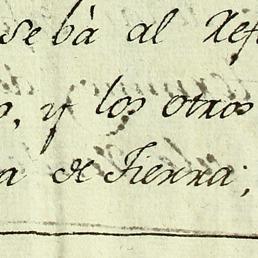 se bà al Refe
o, y los otros
a de Tierra;